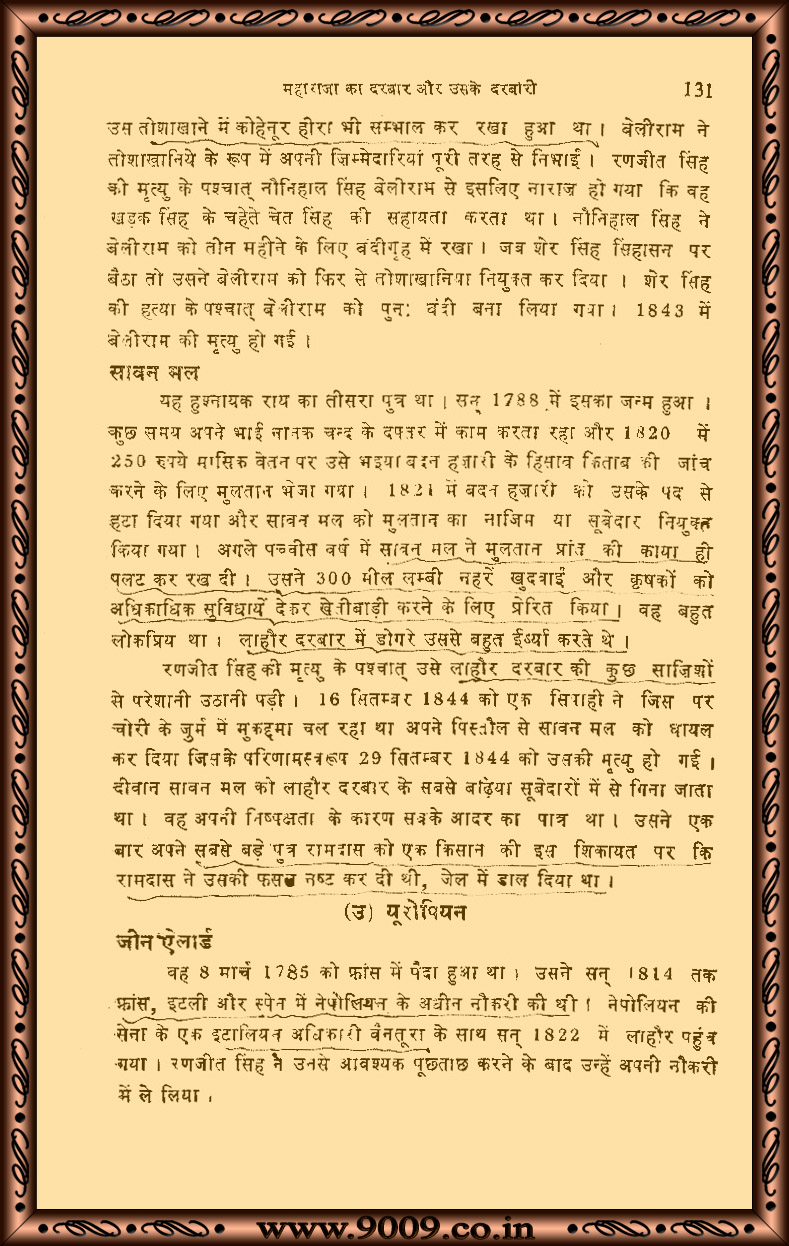 महाराजा का दरबार और उसके दरबारी 131
उस तोशाखाने में कोहेनूर हीरा भी सम्भाल कर रखा हुआ था। बेलीराम ने
तोशाखानिये के रूप में अपनी ज़िम्मेदारियां पूरी तरह से निभाईं। रणजीत सिंह
की मृत्यु के पश्चात् नौनिहाल सिंह बेलीराम से इसलिए नाराज़ हो गया कि वह
खड़क सिंह के चहेते चेत सिंह की सहायता करता था। नौनिहाल सिंह ने
बेलीराम को तीन महीने के लिए बंदीगृह में रखा। जब शेर सिंह सिंहासन पर
बैठा तो उसने बेलीराम को फिर से तोशाखानिया नियुक्त कर दिया । शेर सिंह
की हत्या के पश्चात् बेलीराम को पुनः बंदी बना लिया गया। 1843 में
बेलीराम की मृत्यु हो गई।
सावन मल
यह हुश्नायक राय का तीसरा पुत्र था। सन् 1788 में इसका जन्म हुआ।
कुछ समय अपने भाई नानक चन्द के दफ्तर में काम करता रहा और 1820 में
250 रुपये मासिक वेतन पर उसे भइया बदन हज़ारी के हिसाब किताब की जांच
करने के लिए मुलतान भेजा गया। 1821 में बदन हज़ारी को उसके पद से
हटा दिया गया और सावन मल को मुलतान का नाजिम या सूबेदार नियुक्त
किया गया। अगले पच्चीस वर्ष में सावन मल ने मुलतान प्रांत की काया ही
पलट कर रख दी। उसने 300 मील लम्बी नहरें खुदवाईं और कृषकों को
अधिकाधिक सुविधायें देकर खेतीबाड़ी करने के लिए प्रेरित किया। वह बहुत
लोकप्रिय था। लाहौर दरबार में डोगरे उससे बहुत ईर्ष्या करते थे।
रणजीत सिंह की मृत्यु के पश्चात् उसे लाहौर दरबार की कुछ साज़िशों
से परेशानी उठानी पड़ी। 16 सितम्बर 1844 को एक सिपाही ने जिस पर
चोरी के जुर्म में मुकद्दमा चल रहा था अपने पिस्तौल से सावन मल को घायल
कर दिया जिसके परिणामस्वरूप 29 सितम्बर 1844 को उसकी मृत्यु हो गई।
दीवान सावन मल को लाहौर दरबार के सबसे बढ़िया सूबेदारों में से गिना जाता
था। वह अपनी निष्पक्षता के कारण सबके आदर का पात्र था। उसने एक
बार अपने सबसे बड़े पुत्र रामदास को एक किसान की इस शिकायत पर कि
रामदास ने उसकी फसल नष्ट कर दी थी, जेल में डाल दिया था।
(उ) यूरोपियन
जीन ऐलार्ड
वह 8 मार्च 1785 को फ्रांस में पैदा हुआ था। उसने सन् 1814 तक
फ्रांस, इटली और स्पेन में नेपोलियन के अधीन नौकरी की थी। नेपोलियन की
सेना के एक इटालियन अधिकारी वैनतूरा के साथ सन् 1822 में लाहौर पहुंच
गया। रणजीत सिंह ने उनसे आवश्यक पूछताछ करने के बाद उन्हें अपनी नौकरी
में ले लिया।
www.9009.co.in